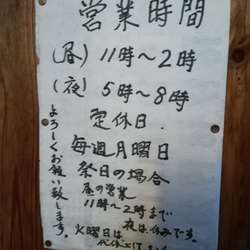 営業時間
(昼) 11時~2時
(夜) 5時~8時
定休日
毎週月曜日
祭日の場合
昼の営業
11時~2時まで
夜は休みです。
火曜日は
代休
よろしくお願い致します。